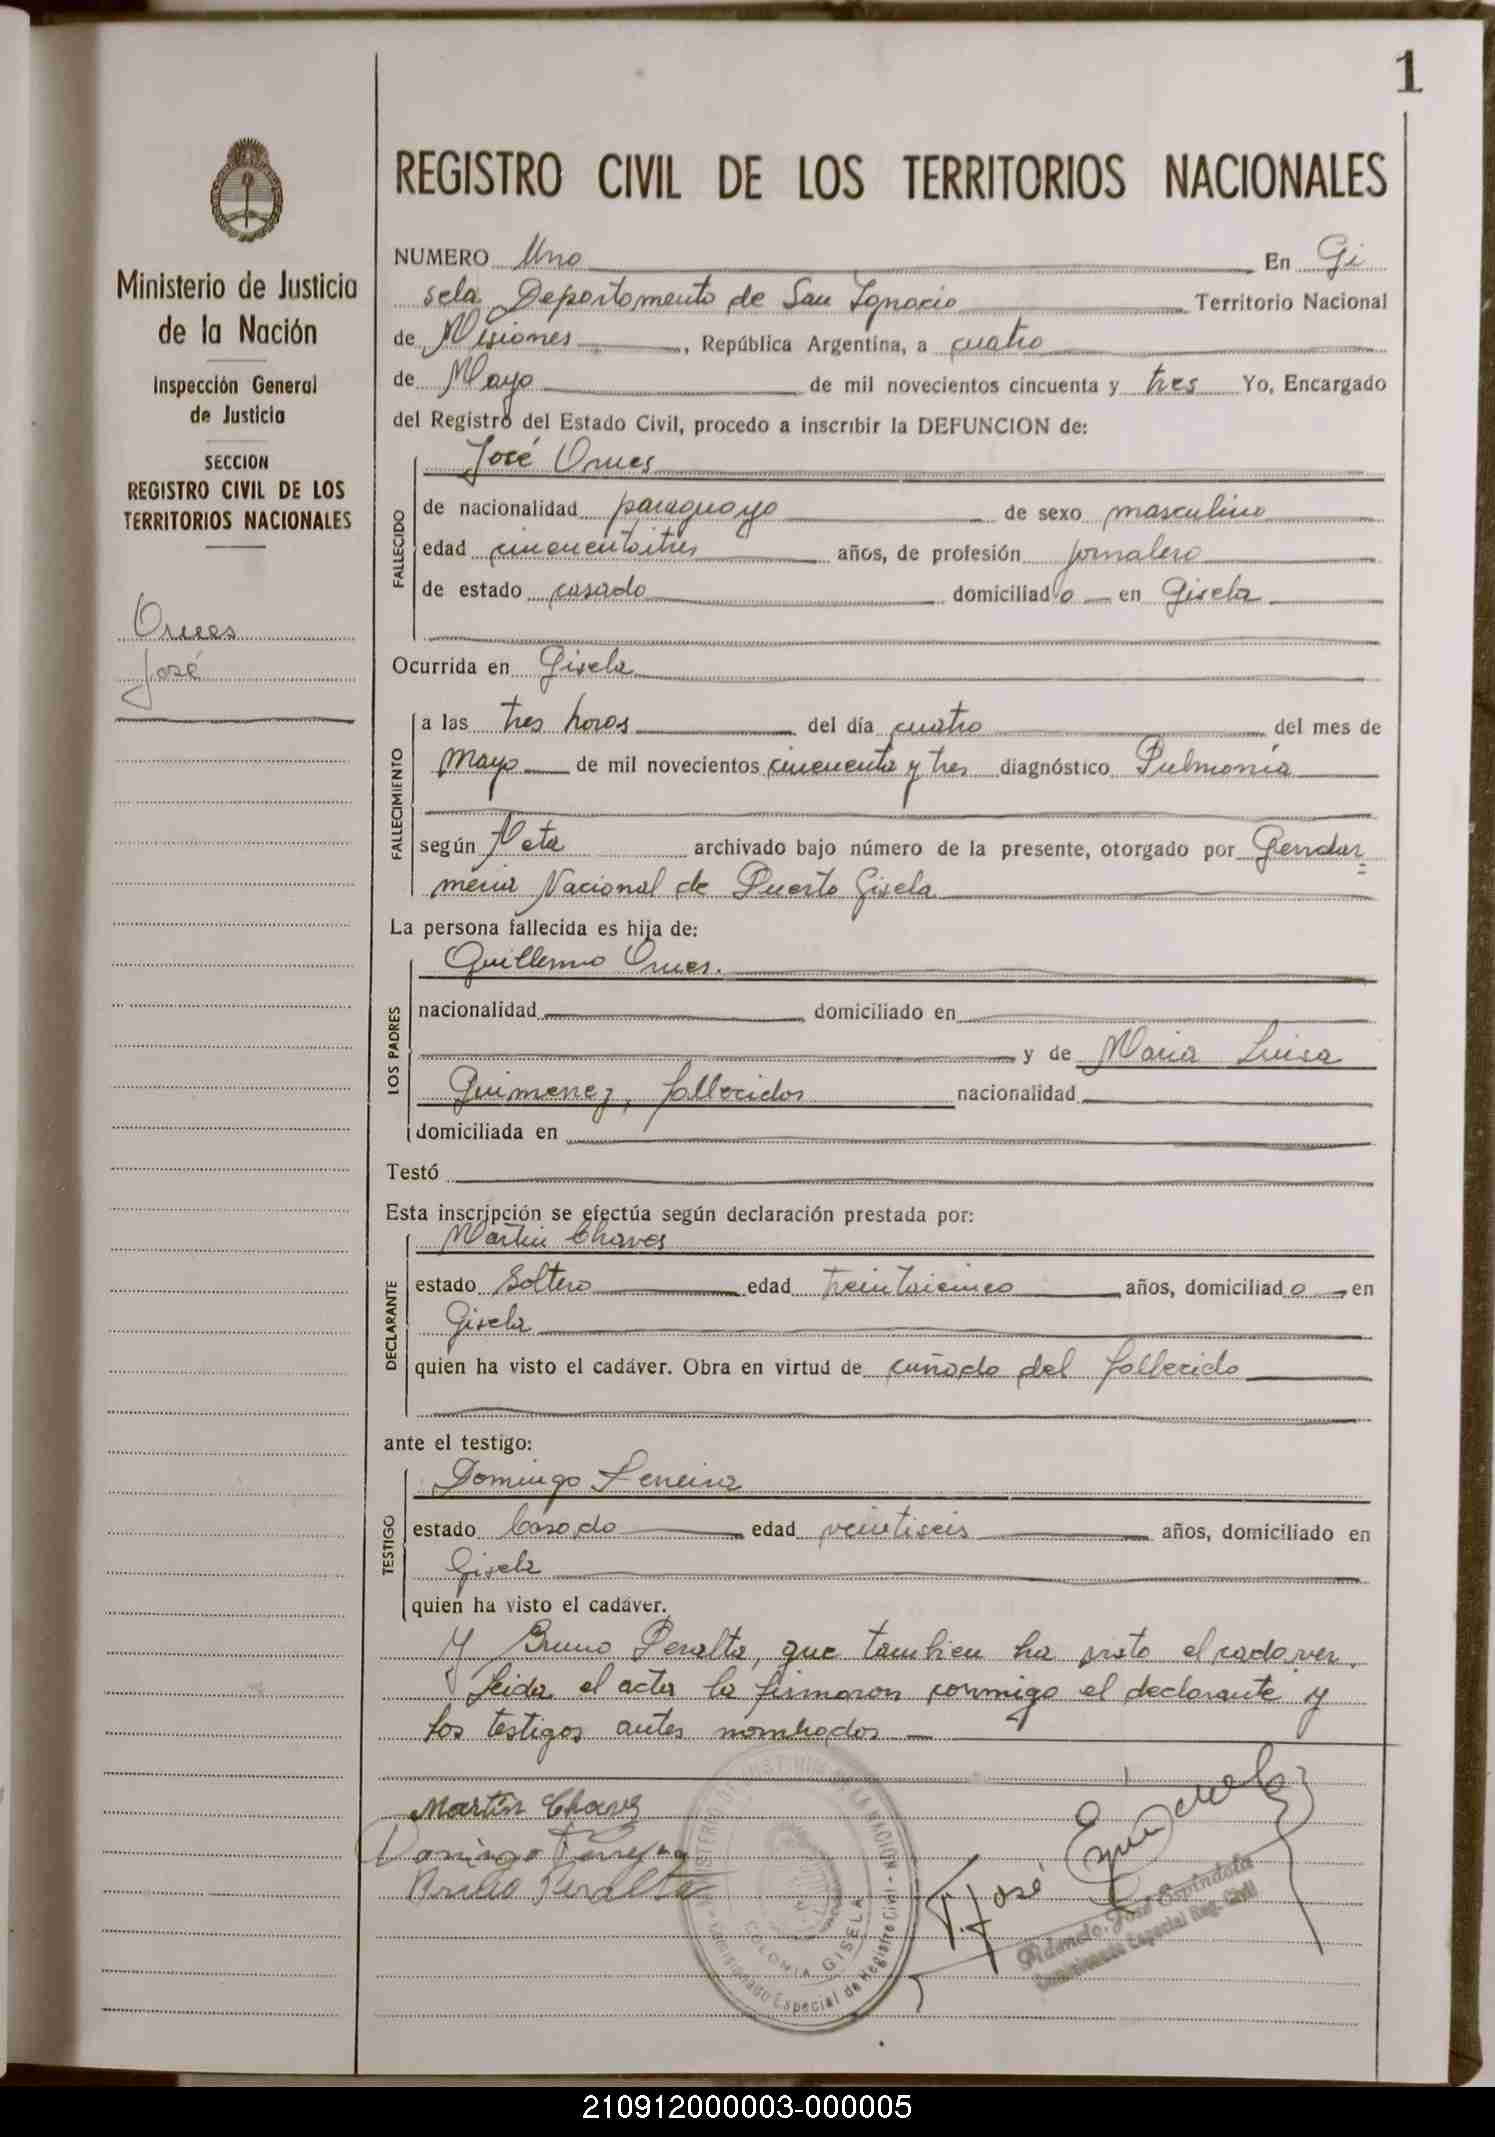 1
REGISTRO CIVIL DE LOS TERRITORIOS NACIONALES
Ministerio de Justicia
de la Nación
Inspección General
de Justicia
SECCION
REGISTRO CIVIL DE LOS
TERRITORIOS NACIONALES
José
NUMERO Uno En Gi
sela Departamento de San Ignacio Territorio Nacional
de Misiones, República Argentina, a cuatro
de Mayo de mil novecientos cincuenta y tres Yo, Encargado
del Registro del Estado Civil, procedo a inscribir la DEFUNCION de:
FALLECIDO
José
de nacionalidad paraguayo de sexo masculino
edad cincuentaitres años, de profesión jornalero
de estado casado domiciliado en Gisela
Ocurrida en Gisela
FALLECIMIENTO
a las tres horas del día cuatro del mes de
mayo de mil novecientos cincuenta y tres diagnóstico Pulmonía
según Nota archivado bajo número de la presente, otorgado por Gendar=
meria Nacional de Puerto Gisela
La persona fallecida es hija de:
LOS PADRES
Guillermo
nacionalidad domiciliado en
y de Maria Luisa
Guimenez, fallecidos nacionalidad
domiciliada en
Testó
Esta inscripción se efectúa según declaración prestada por:
DECLARANTE
Martin Chaves
estado Soltero edad treintaicinco años, domiciliado en
Gisela
quien ha visto el cadáver. Obra en virtud de cuñado del fallecido
ante el testigo:
TESTIGO
Domingo Pereira
estado Casado edad veintiseis años, domiciliado en
Gisela
quien ha visto el cadáver.
Y Bruno Peralta, que tambien ha visto el cadaver.
Leida el acta la firmaron conmigo el declarante y
los testigos antes nombrados
Martín Chavez
Domingo
Peralta
MINISTERIO DE JUSTICIA DE LA NACION
COLONIA GISELA
Comisionado Especial de Registro Civil
José
José Espindola
Especial Reg. Civil
210912000003-000005